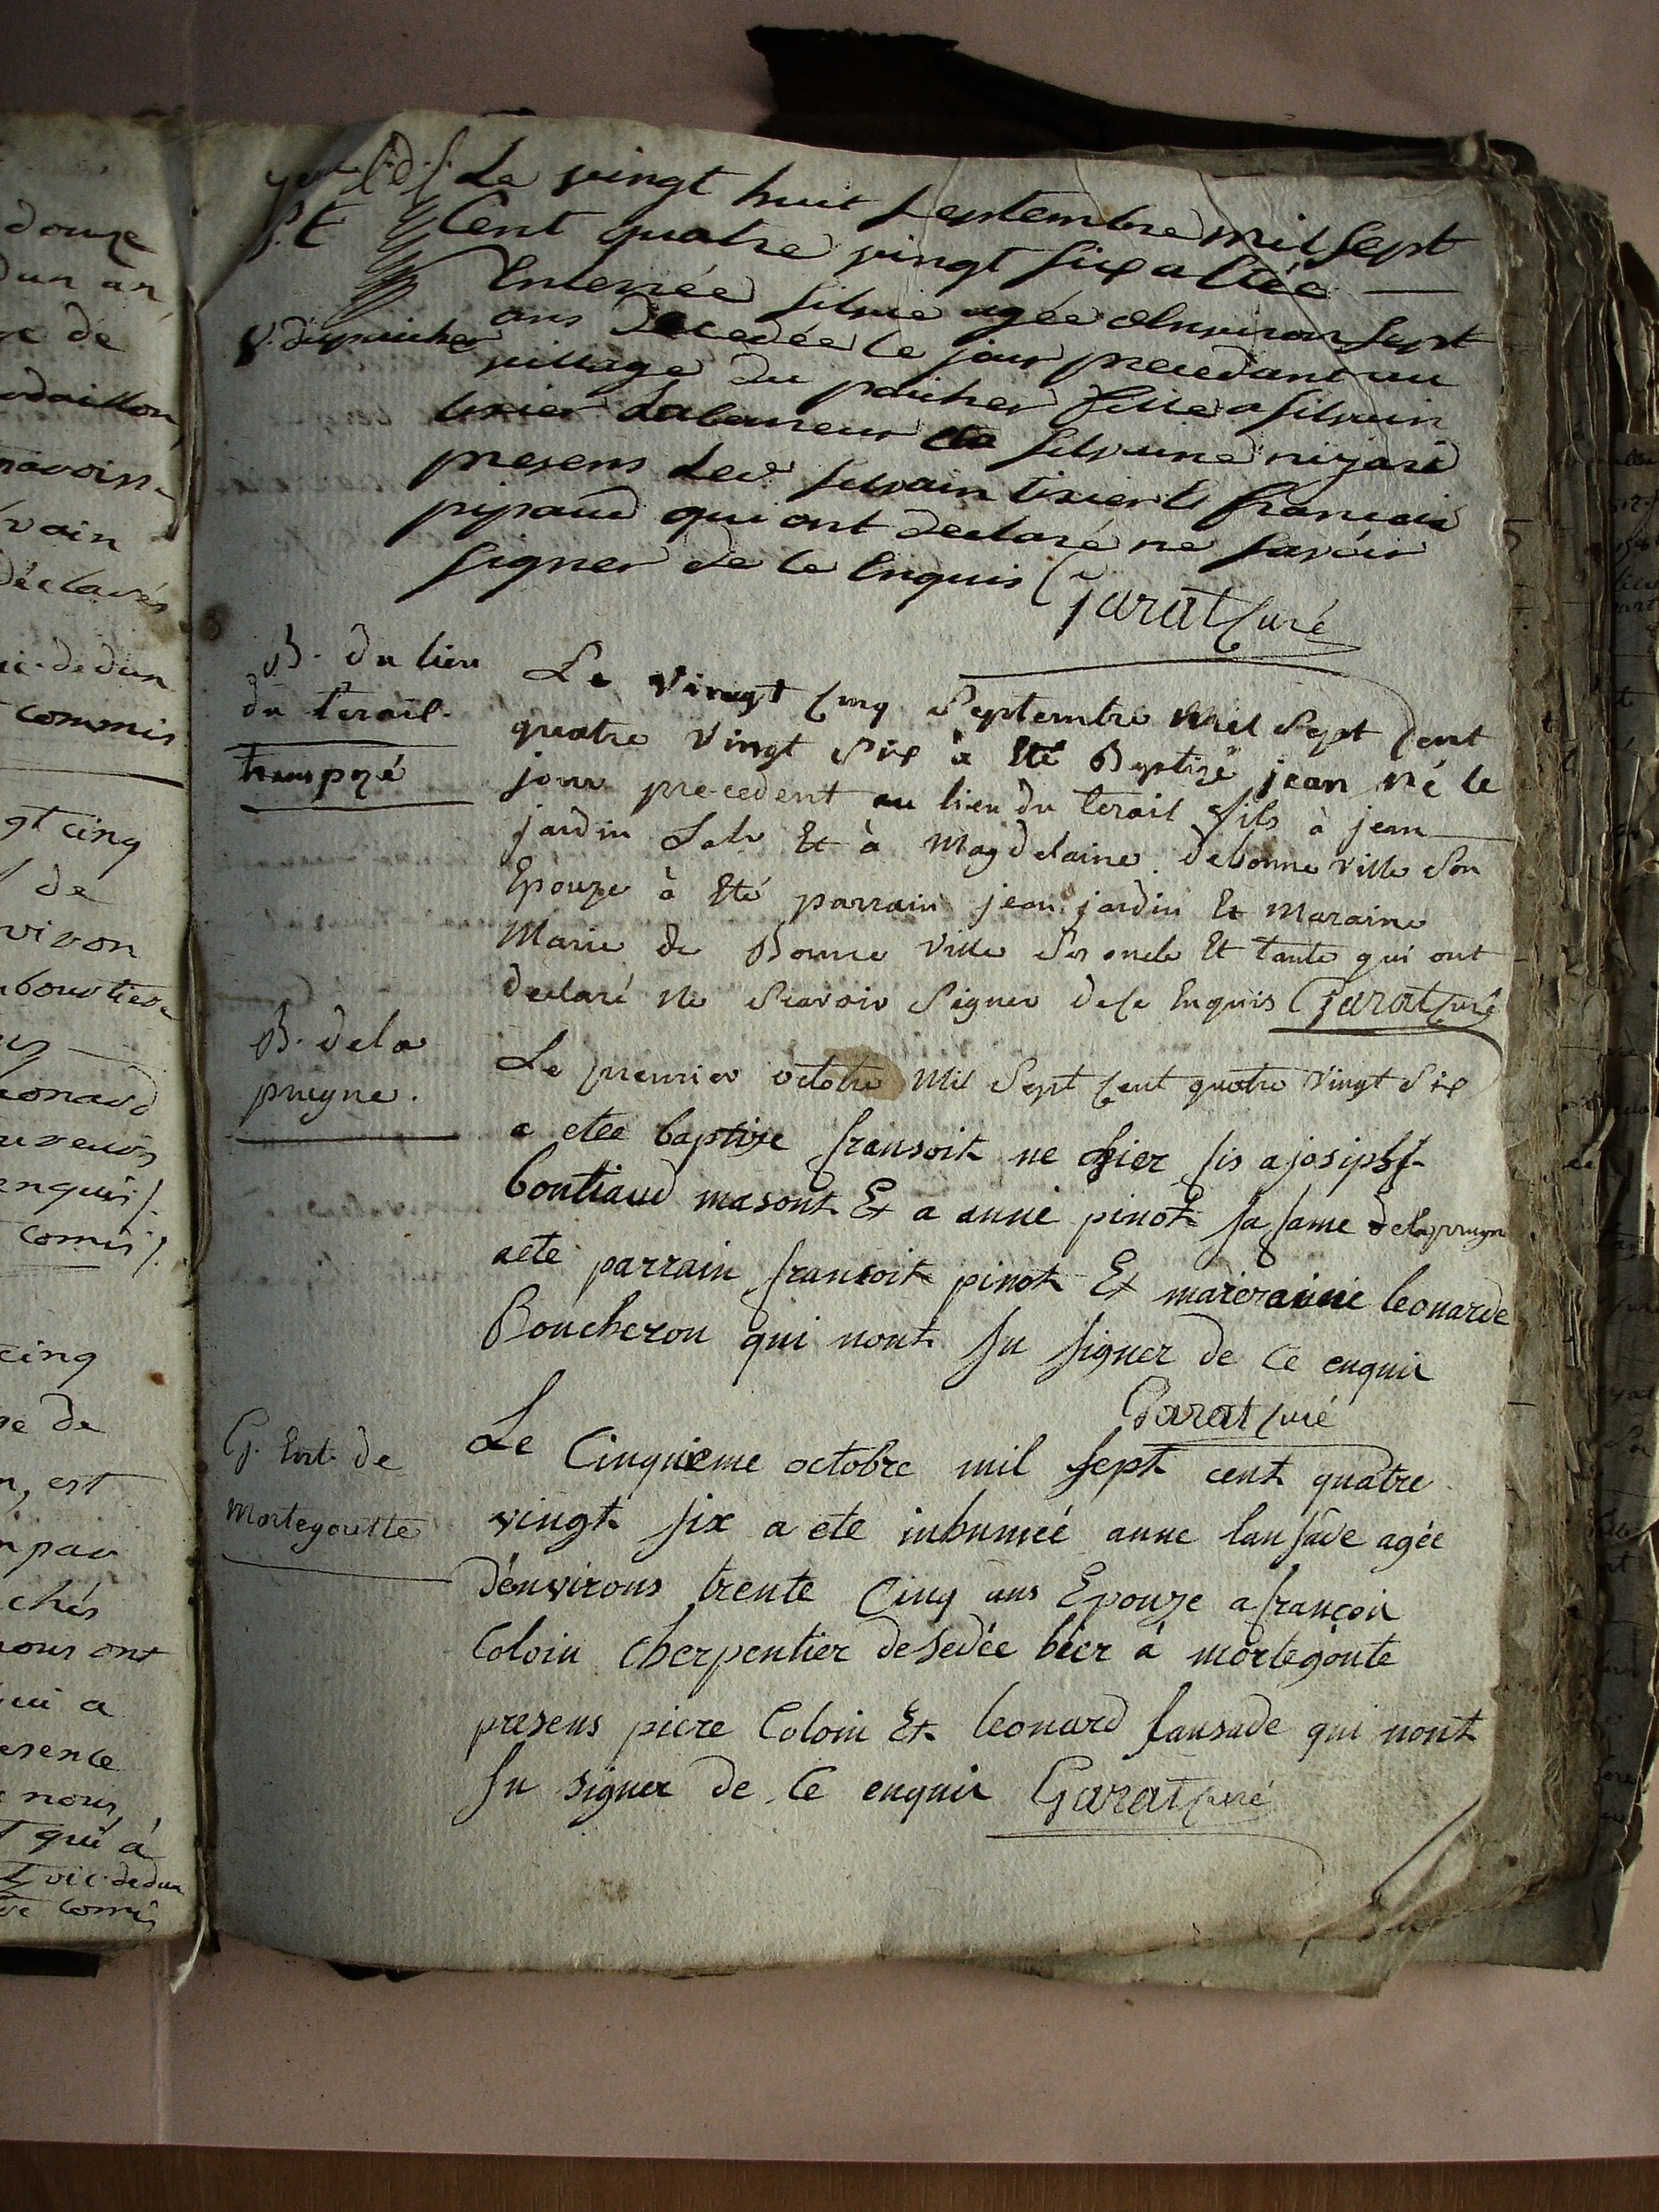 Le vingt huit septembre mil sept
Cent quatre vingt six a Etée
Enterrée silvie agée denviron sept
ans decedée le jour precedant au
village du paicher fille a silvain
tixier Laboureur et a silvaine nizard
presens Led. silvain tixier et francois
pipaud qui ont declaré ne savoir
signer de ce Enquis Garat Curé
V. du paicher
B. du lieu
du terail.
transpozé
Le vingt Cinq Septembre Mil Sept Cent
quatre Vingt Six à Eté Baptizé jean Né le
jour precedent au lieu du terail fils à jean
jardin Labr Et à Magdelaine debonne ville Son
Epouze à Eté parrain jean jardin Et Maraine
Marie de Bonne Ville Ses oncle Et tante qui ont
declaré Ne Scavoir Signer de ce Enquis Garat Curé
B. de la
prugne.
Le premier octobre Mil Sept Cent quatre Vingt Six
a etee baptize fransoit ne hier fis a josiphf
boutiaud masont Et a anne pinot sa fame delaprugne
aete parrain fransoit pinot Et mareraine leonarde
Boucheron qui nont su signer de ce enquis
Garat Curé
G. Ent. de
Mortegoutte
Le Cinquieme octobre mil sept cent quatre
vingt six a ete inhumée anne lansade agée
d'environs trente Cinq ans Epouze a françois
Coloin Cherpentier desedée hier à mortegoute
presens piere Coloin Et leonard lansade qui nont
su signer de ce enquis Garat Curé
douze
dun an
de
vain
déclarés
commis
gt cinq
de
viron
enquis
comis
cinq
de
est
chés
nous ont
qui a
nous
qui à
vic. dedun
comis